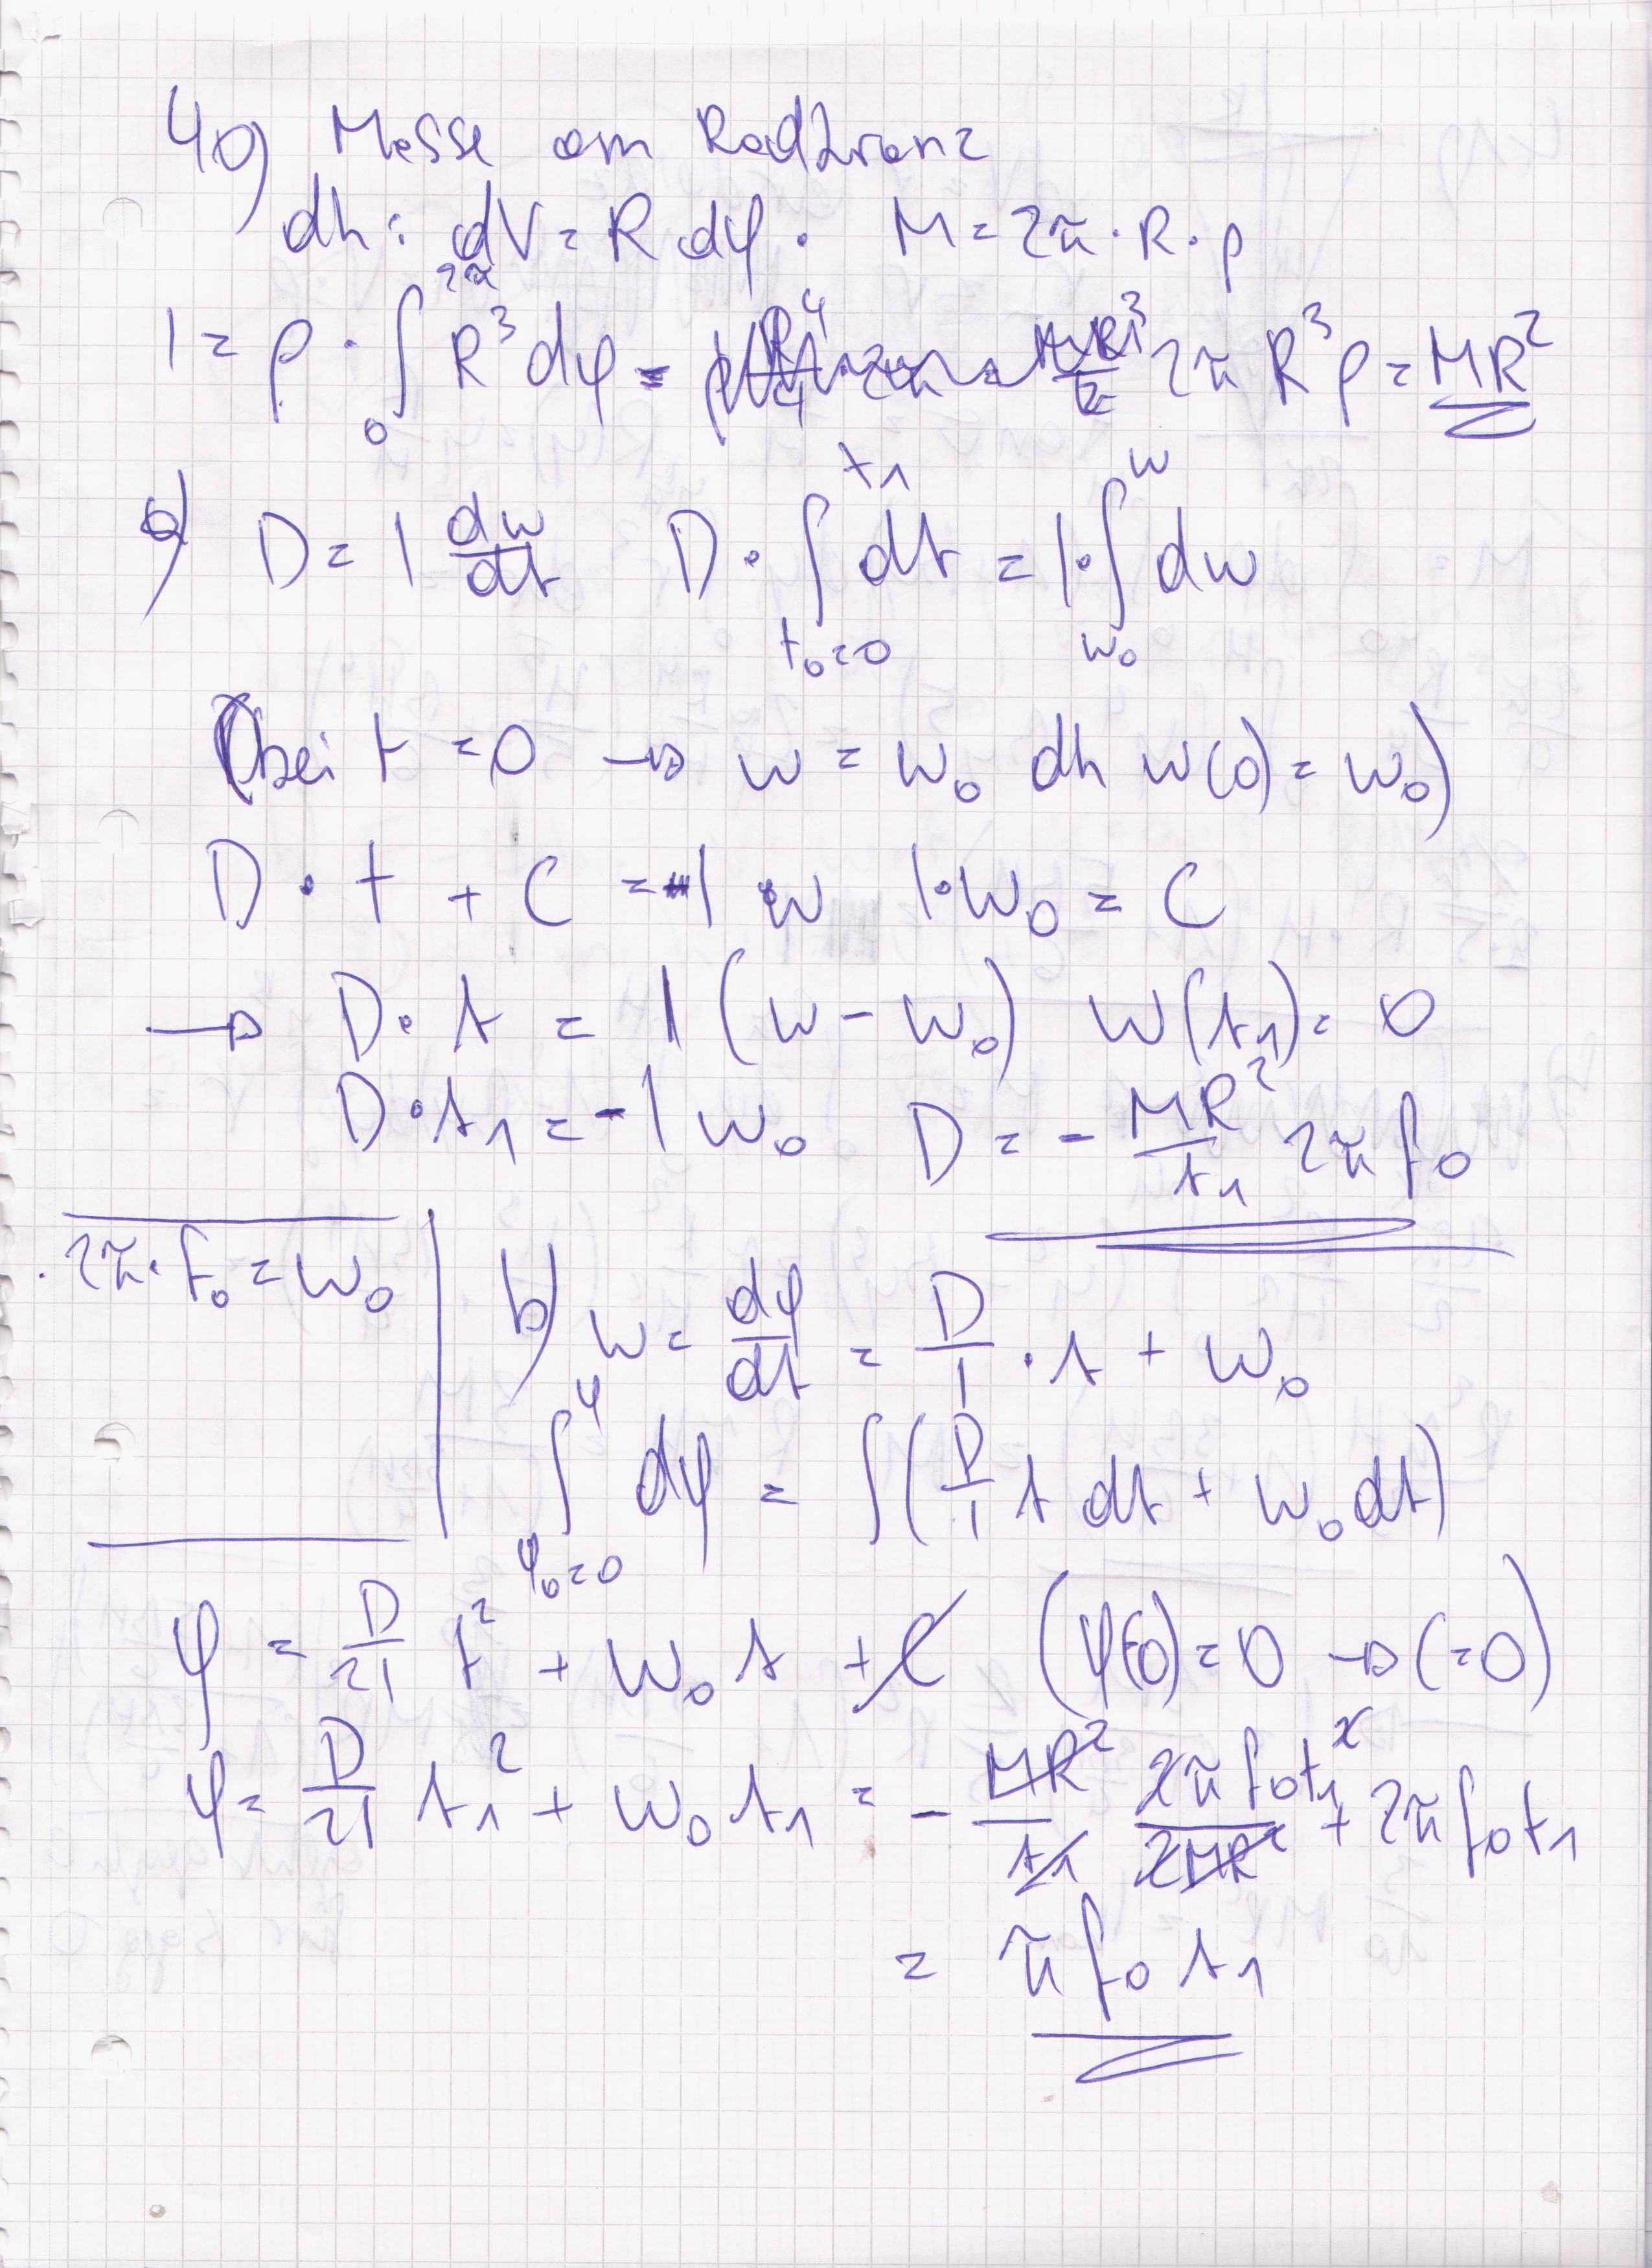 4a) Masse am Radkranz
dh: dV = R dφ · M = 2π · R · ρ
I = ρ · ∫₀^2π R³ dφ = 2π R³ ρ = MR²
a) D = I dω/dt D · ∫_{t₀=0}^{t₁} dt = I · ∫_{ω₀}^{ω} dω
(bei t = 0 → ω = ω₀ dh ω(0) = ω₀)
D · t + C = I ω I · ω₀ = C
→ D · t = I (ω - ω₀) ω(t₁) = 0
D · t₁ = - I ω₀ D = - MR²/t₁ 2π f₀
2π · f₀ = ω₀
b) ω = dφ/dt = D/I · t + ω₀
∫_{φ₀=0}^{φ} dφ = ∫ (D/I t dt + ω₀ dt)
φ = D/2I t² + ω₀ t + C (φ(0) = 0 → C = 0)
φ = D/2I t₁² + ω₀ t₁ = - MR²/t₁ 2π f₀ t₁²/2MR² + 2π f₀ t₁
= π f₀ t₁